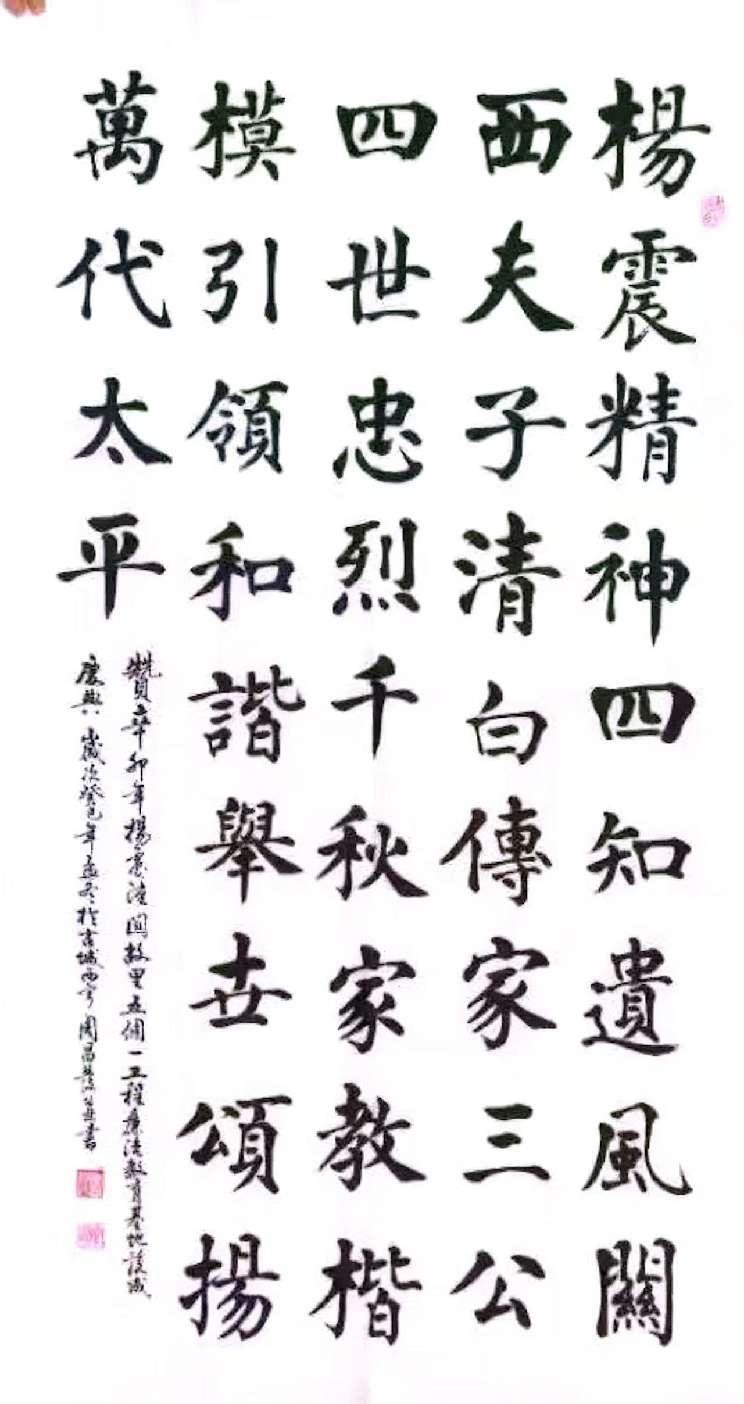 楊震精神四知遺風關
西夫子清白傳家三公
四世忠烈千秋家教楷
模引領和諧舉世頌揚
萬代太平
贊辛卯年楊震潼關故里五個一工程廉潔教育基地設成
慶典 歲次癸巳年孟冬於古城西安 周昌 書